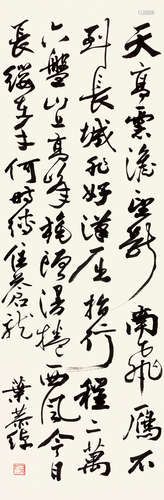 天高雲澹望斷南飛雁不
到長城非好漢屈指行程二萬
六盤山上高峯旄頭漫捲西風今日
長纓在手何時縛住蒼龍
葉恭綽